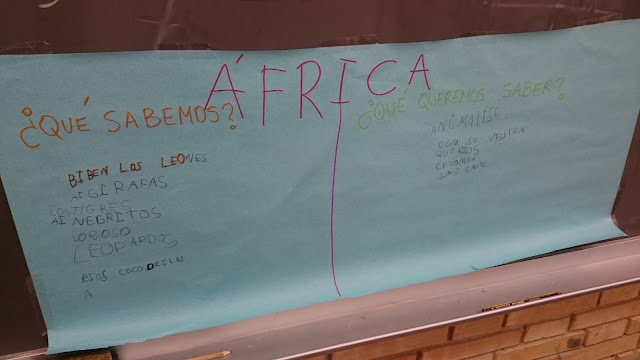 ÁFRICA
¿QUÉ SABEMOS?
BIBEN LOS LEONES
AI GIRAFAS
LOSTIGRES
AI NEGRITOS
LOROSO
LEOPARDOS
RIOS COCODRILAS
A
¿QUÉ QUEREMOS SABER?
ANIMALESE
COM SE